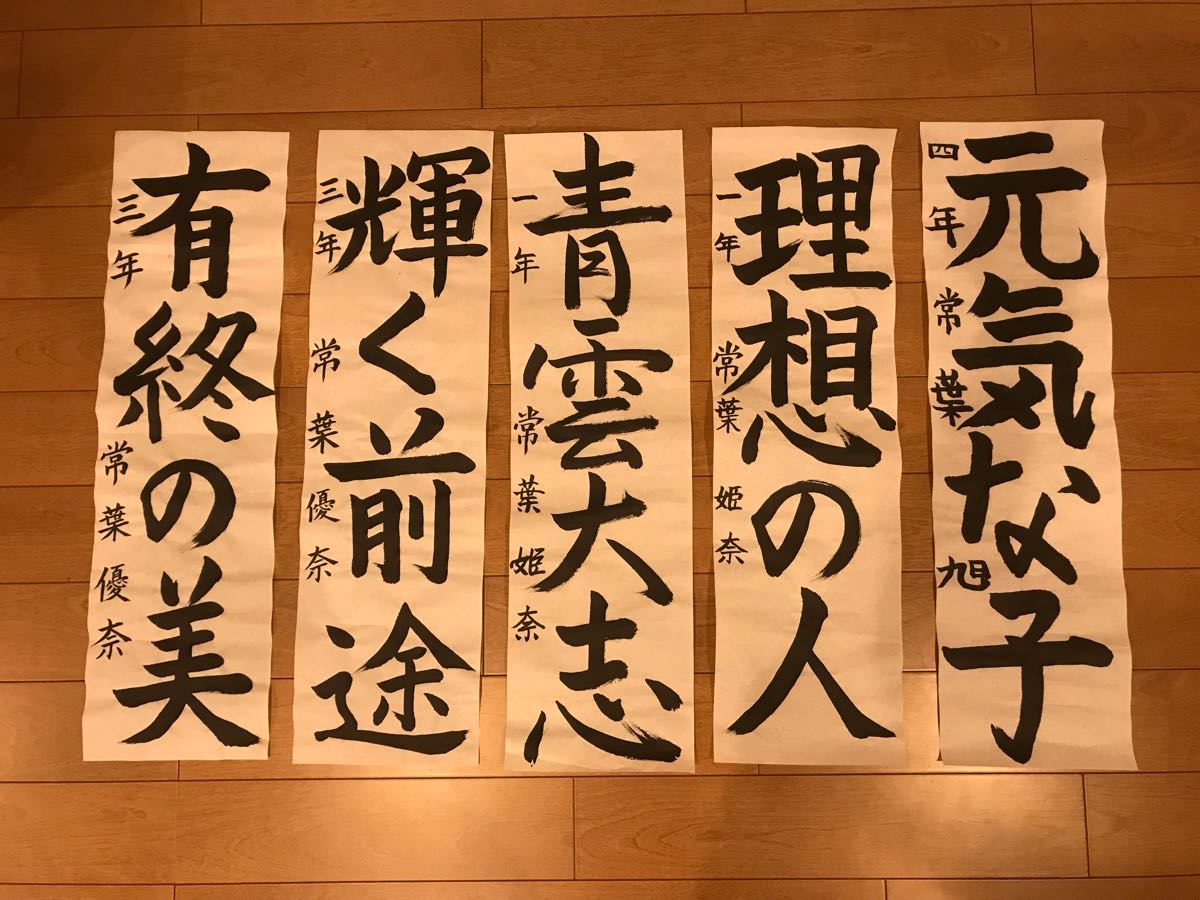 元気な子
四年 常葉 旭
理想の人
一年 常葉 姫奈
青雲大志
一年 常葉 姫奈
輝く前途
三年 常葉 優奈
有終の美
三年 常葉 優奈